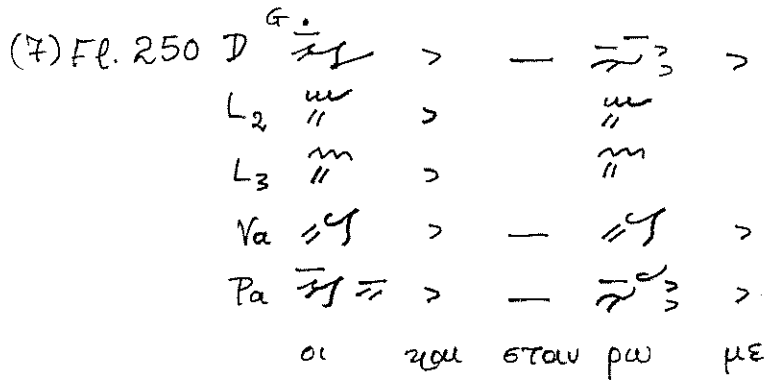 (7) Fl. 250 D G
L2
L3
Va
Pa
οι και σταυ ρω με